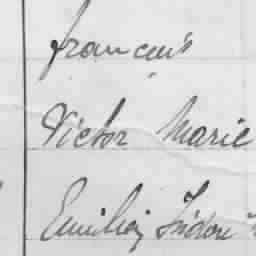 françois
Victor Marie
Emilien Isidore